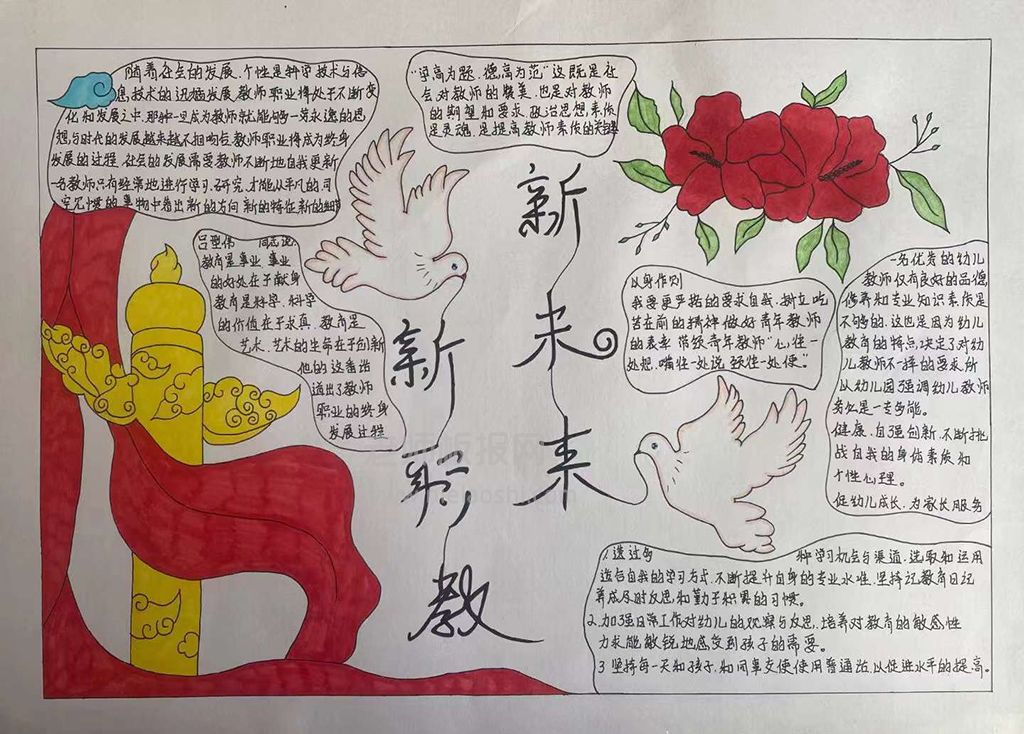 随着社会的发展、个性是科学技术与信
息技术的迅猛发展,教师职业将处于不断变
化和发展之中.那种一旦成为教师就能够一劳永逸的思
想,与时代的发展越来越不相吻合.教师职业将成为终身
发展的过程.社会的发展需要教师不断地自我更新
一名教师只有经常地进行学习.研究.才能从平凡的司
空见惯的事物中看出新的方向 新的特征 新的细节
“学高为题、德高为范”这既是社
会对教师的赞美.也是对教师
的期望和要求.政治思想素质
是灵魂.是提高教师素质的关键
吕型伟 同志说.
教育是事业.事业
的好处在于献身
教育是科学.科学
的价值在于求真.教育是
艺术.艺术的生命在于创新
他的这番话
道出了教师
职业的终身
发展过程
新未来
新师教
以身作则
我要更严格的要求自我.树立吃
苦在前的精神做好青年教师
的表率 带领青年教师“心往一
处想.嘴往一处说 致往一处使”
一名优秀的幼儿
教师仅有良好的品德
修养和专业知识素质是
不够的.这也是因为幼儿
教育的特点,决定了对幼
儿教师不一样的要求.所
以幼儿园强调幼儿教师
务必是一专多能。
健康.自强创新.不断挑
战自我的身体素质和
个性心理。
促幼儿成长.为家长服务
1.透过多 种学习机会与渠道.选取和运用
适合自我的学习方式.不断提升自身的专业水准.坚持记教育日记
养成及时反思和勤于积累的习惯。
2.加强日常工作对幼儿的观察与反思.培养对教育的敏感性
力求能敏锐地感受到孩子的需要。
3 坚持每一天和孩子.和同事交使使用普通话.以促进水平的提高。